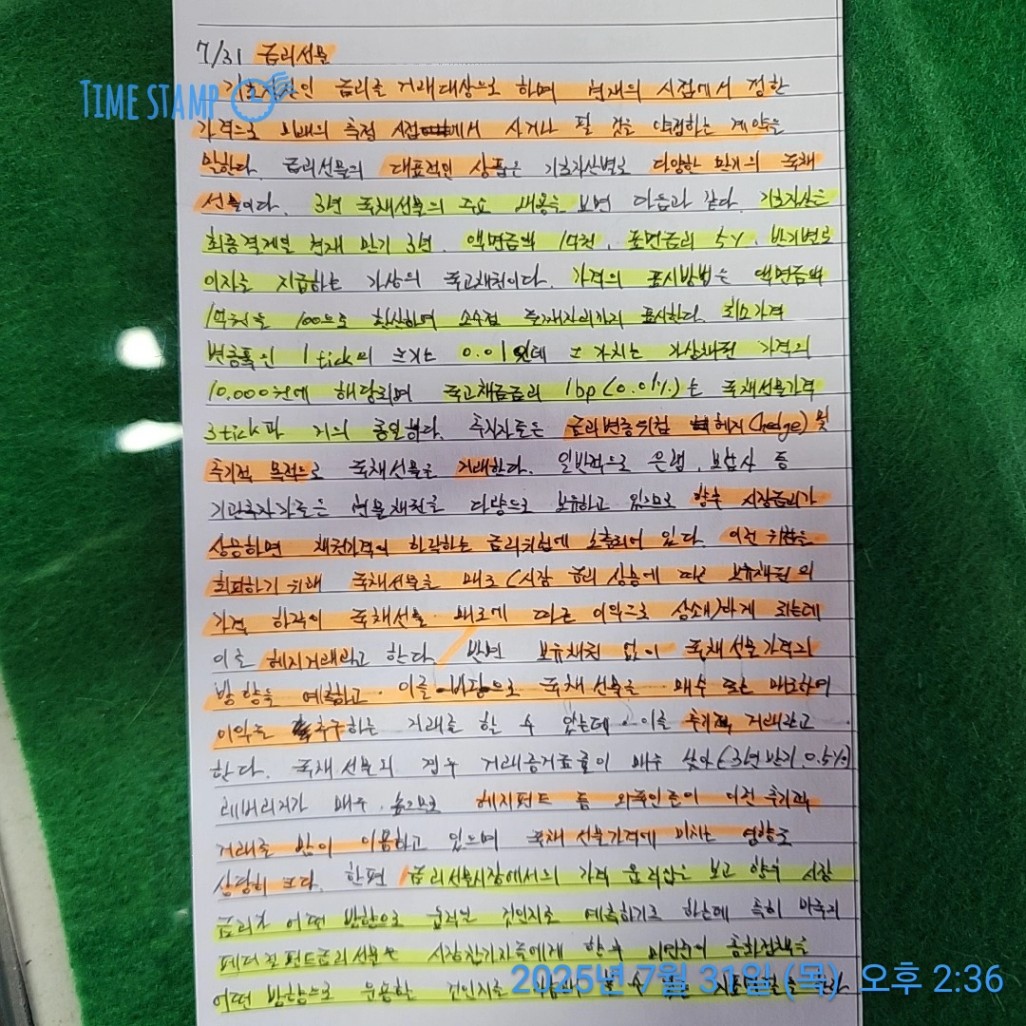 7/31 금리선물
TIME STAMP
기초자산인 금리를 거래대상으로 하며 현재의 시점에서 정한
가격으로 미래의 특정 시점에서 사거나 팔 것을 약정하는 계약을
말한다. 금리선물의 대표적인 상품은 기초자산별로 다양한 만기의 국채
선물이다. 3년 국채선물의 주요 내용을 보면 다음과 같다. 기초자산은
최종결제일 현재 만기 3년, 액면금액 1억원, 표면금리 5%, 반기별로
이자를 지급하는 가상의 국고채권이다. 가격의 표시방법은 액면금액
1억원을 100으로 환산하여 소수점 둘째자리까지 표시한다. 최소가격
변동폭인 1tick의 크기는 0.01인데 그 가치는 가상채권 가격의
10,000원에 해당되며 국고채금리 1bp(0.01%)는 국채선물가격
3tick과 거의 동일하다. 투자자들은 금리변동위험 헤지(hedge) 및
투기적 목적으로 국채선물을 거래한다. 일반적으로 은행, 보험사 등
기관투자가들은 현물채권을 다량으로 보유하고 있으므로 향후 시장금리가
상승하면 채권가격이 하락하는 금리위험에 노출되어 있다. 이런 위험을
회피하기 위해 국채선물을 매도(시장 금리 상승에 따른 보유채권의
가격 하락이 국채선물 매도에 따른 이익으로 상쇄)하게 되는데
이를 헤지거래라고 한다. 반면 보유채권 없이 국채선물가격의
방향을 예측하고 이를 바탕으로 국채선물을 매수 또는 매도하여
이익을 추구하는 거래를 할 수 있는데 이를 투기적 거래라고
한다. 국채선물의 경우 거래증거금률이 매우 낮아(3년 만기 0.5%)
레버리지가 매우 높으므로 헤지펀드 등 외국인들이 이런 투기적
거래를 많이 이용하고 있으며 국채선물가격에 미치는 영향도
상당히 크다. 한편 금리선물시장에서의 가격 움직임을 보고 향후 시장
금리가 어떤 방향으로 움직일 것인지를 예측하기도 하는데 특히 미국의
페더럴펀드금리선물은 시장참가자들에게 향후 미연준이 통화정책을
어떤 방향으로 운용할 것인지를
2025년 7월 31일 (목) 오후 2:36